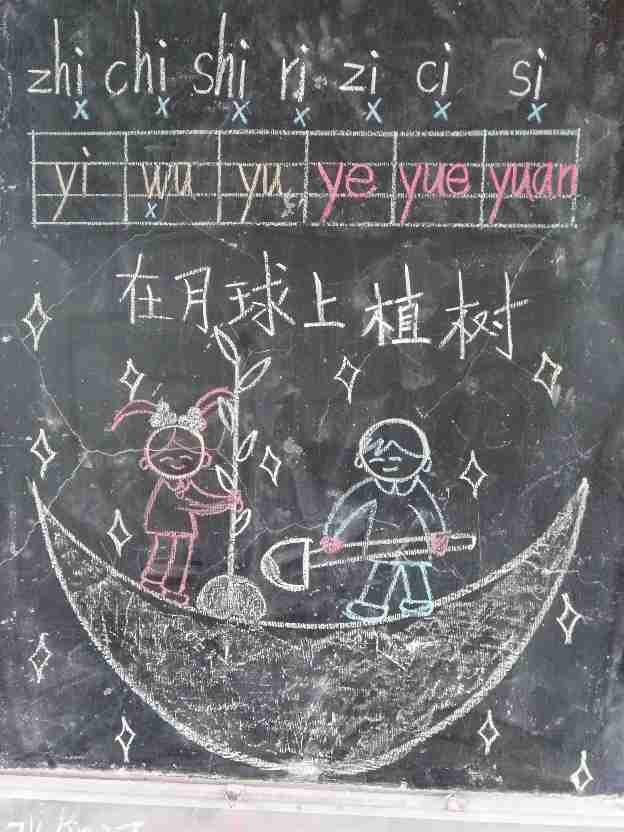 zhi chi shi ri zi ci si
x x x x x x x
yi wu yu ye yue yuan
x x
在月球上植树